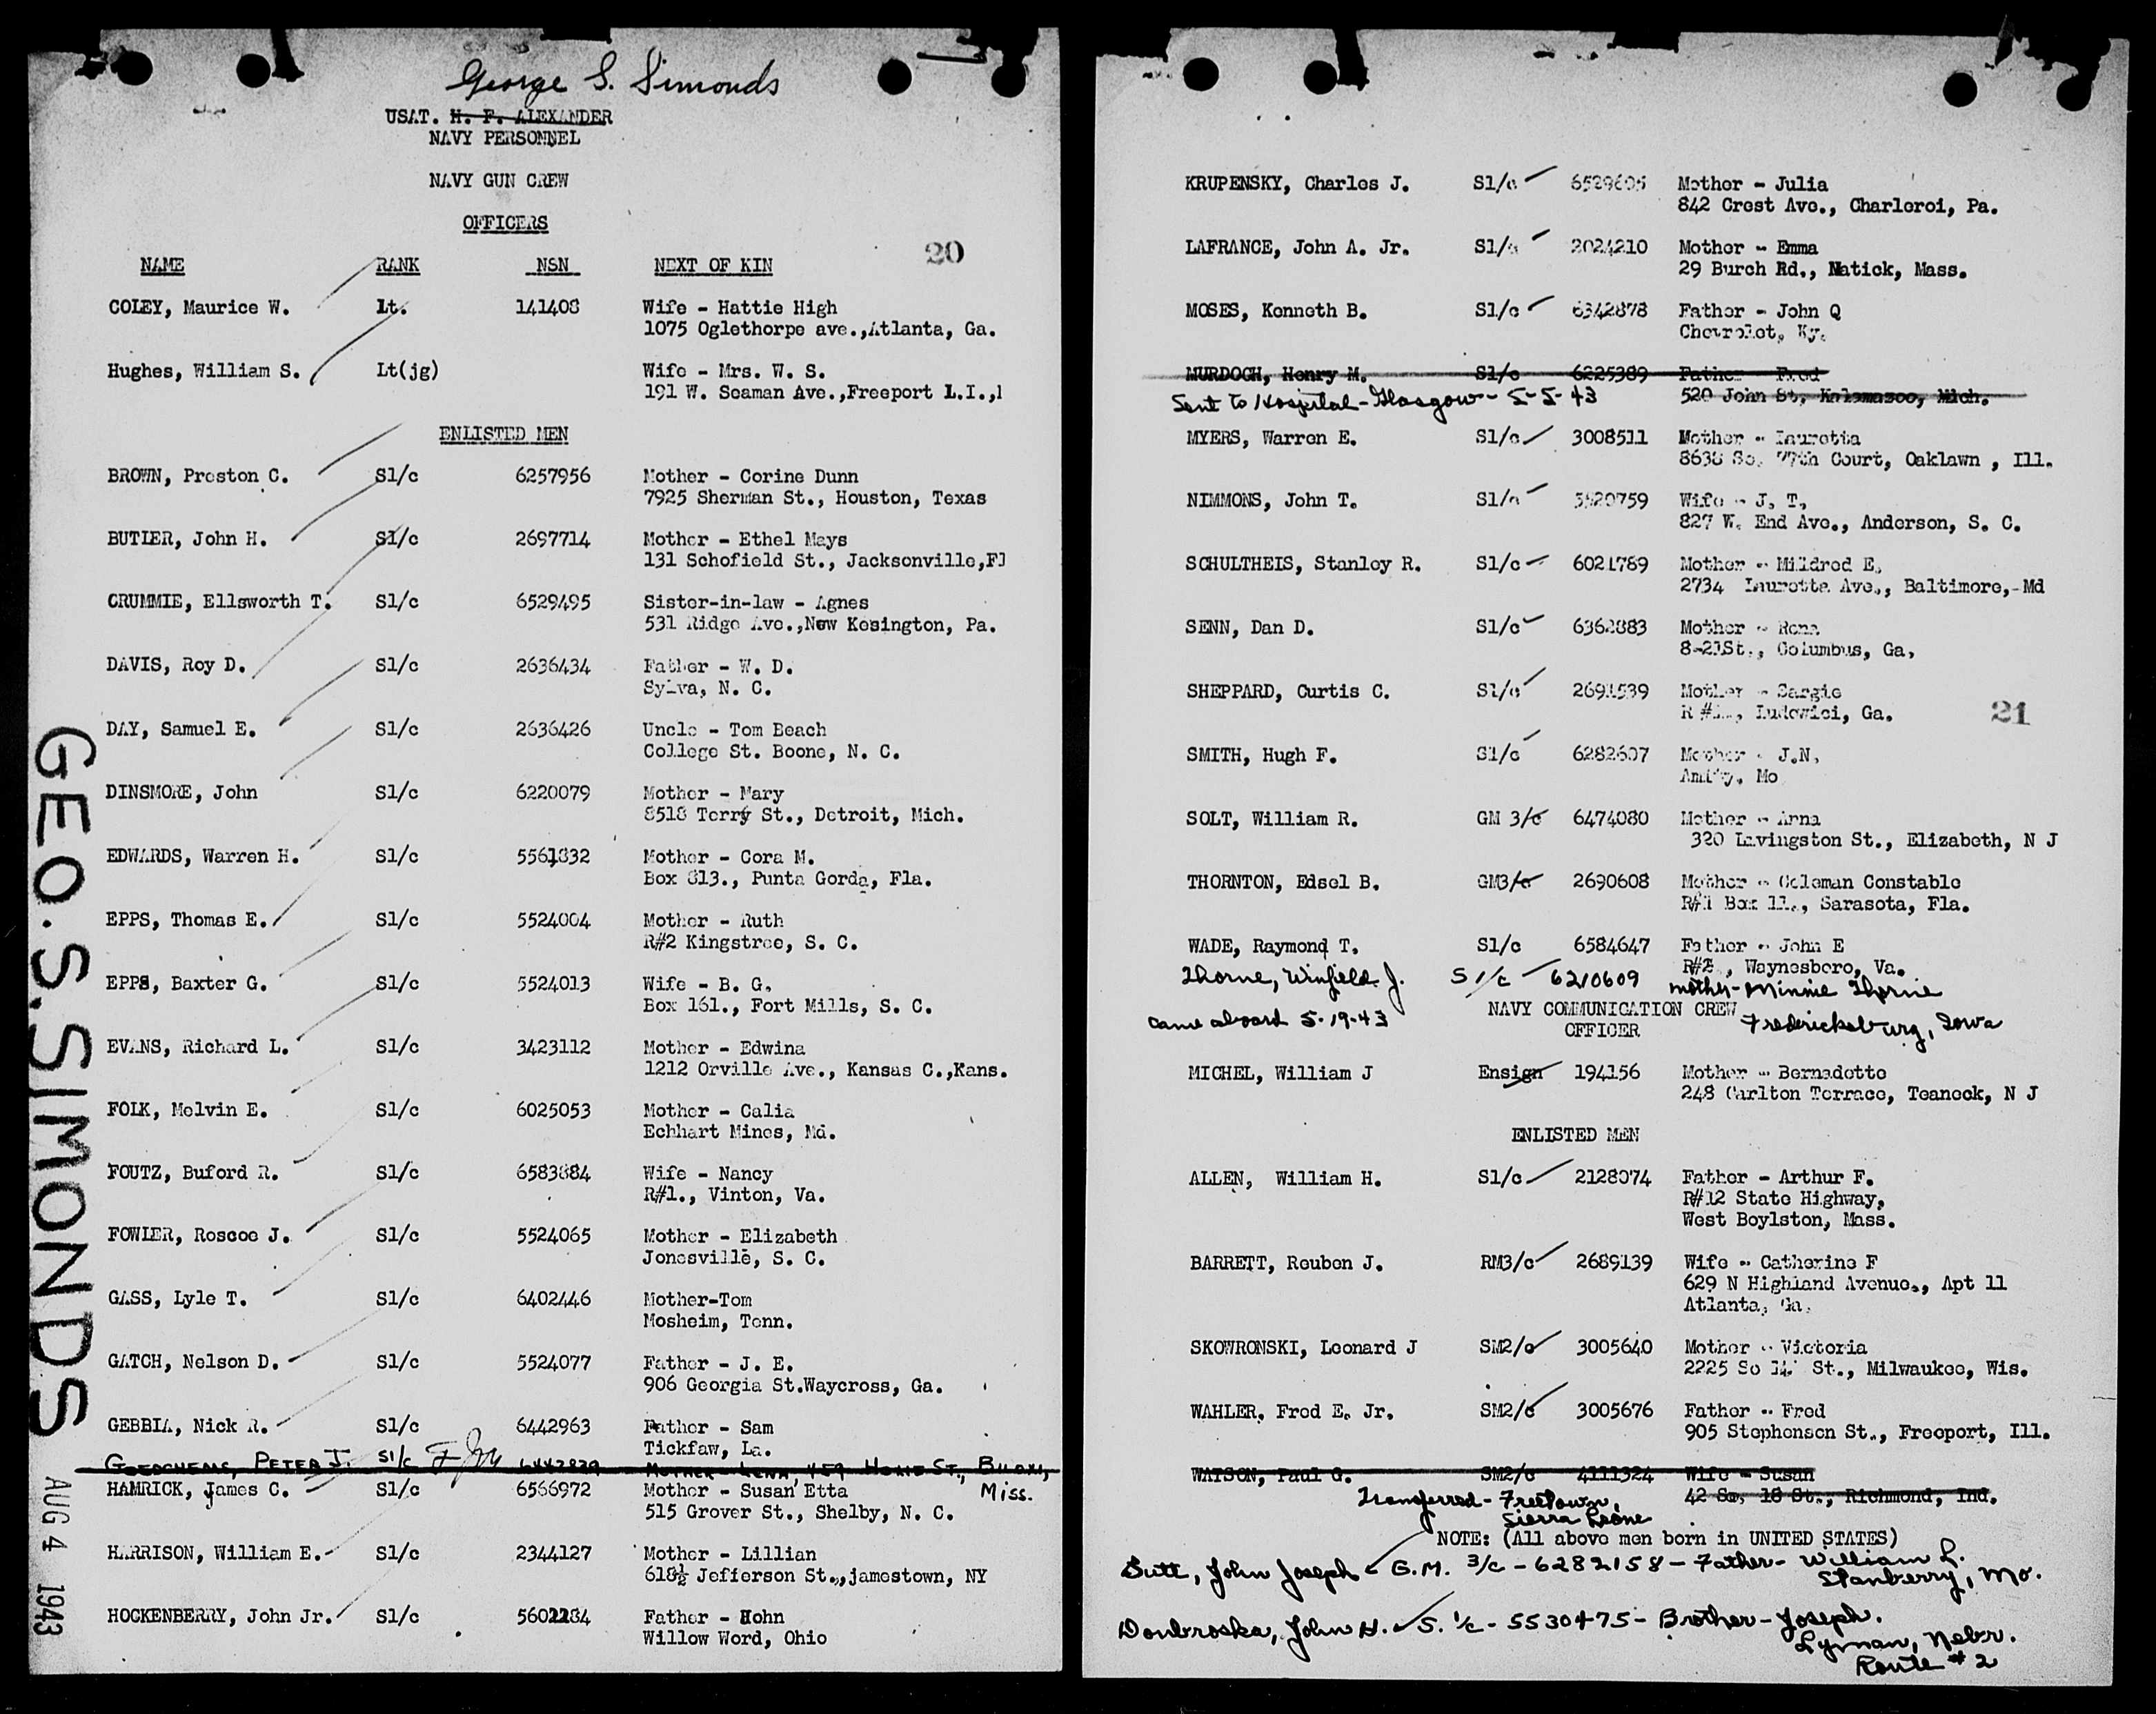 George S. Simonds
USAT. H. F. ALEXANDER
NAVY PERSONNEL
NAVY GUN CREW
OFFICERS
20
NAME RANK NSN NEXT OF KIN
COLEY, Maurice W. Lt. 141408 Wife - Hattie High
1075 Oglethorpe ave.,Atlanta, Ga.
Hughes, William S. Lt(jg) Wife - Mrs. W. S.
191 W. Seaman Ave.,Freeport L.I.,
ENLISTED MEN
BROWN, Preston C. S1/c 6257956 Mother - Corine Dunn
7925 Sherman St., Houston, Texas
BUTLER, John H. S1/c 2697714 Mother - Ethel Mays
131 Schofield St., Jacksonville,Fl
CRUMMIE, Ellsworth T. S1/c 6529495 Sister-in-law - Agnes
531 Ridge Ave.,New Kesington, Pa.
DAVIS, Roy D. S1/c 2636434 Father - W. D.
Sylva, N. C.
DAY, Samuel E. S1/c 2636426 Uncle - Tom Beach
College St. Boone, N. C.
DINSMORE, John S1/c 6220079 Mother - Mary
8518 Terry St., Detroit, Mich.
EDWARDS, Warren H. S1/c 5561832 Mother - Cora M.
Box 813., Punta Gorda, Fla.
EPPS, Thomas E. S1/c 5524004 Mother - Ruth
R#2 Kingstree, S. C.
EPPS, Baxter G. S1/c 5524013 Wife - B. G.
Box 161., Fort Mills, S. C.
EVANS, Richard L. S1/c 3423112 Mother - Edwina
1212 Orville Ave., Kansas C.,Kans.
FOLK, Melvin E. S1/c 6025053 Mother - Calia
Echhart Mines, Md.
FOUTZ, Buford R. S1/c 6583884 Wife - Nancy
R#1., Vinton, Va.
FOWLER, Roscoe J. S1/c 5524065 Mother - Elizabeth
Jonesville, S. C.
GASS, Lyle T. S1/c 6402446 Mother-Tom
Mosheim, Tenn.
GATCH, Nelson D. S1/c 5524077 Father - J. E.
906 Georgia St.Waycross, Ga.
GEBBIA, Nick R. S1/c 6442963 Father - Sam
Tickfaw, La.
PETER J. S1/c 6442839 MOTHER - LENA, 459 HOWIE ST., BILOXI,
Miss.
HAMRICK, James C. S1/c 6566972 Mother - Susan Etta
515 Grover St., Shelby, N. C.
HARRISON, William E. S1/c 2344127 Mother - Lillian
618½ Jefferson St.,jamestown, NY
HOCKENBERRY, John Jr. S1/c 5602284 Father - Hohn
Willow Word, Ohio
GEO. S. SIMONDS
AUG 4 1943
KRUPENSKY, Charles J. S1/c 6529605 Mother - Julia
842 Crest Ave., Charleroi, Pa.
LAFRANCE, John A. Jr. S1/c 2024210 Mother - Emma
29 Burch Rd., Natick, Mass.
MOSES, Kenneth B. S1/c 6342878 Father - John Q
Chevrolet, Ky.
MURDOCH, Henry M. S1/c 6225389 Father Fred
520 John St, Kalamazoo, Mich.
Sent to Hospital - Glasgow - 5-5-43
MYERS, Warren E. S1/c 3008511 Mother - Lauretta
8638 So. 77th Court, Oaklawn , Ill.
NIMMONS, John T. S1/c 5520759 Wife - J. T.
827 W. End Ave., Anderson, S. C.
SCHULTHEIS, Stanley R. S1/c 6021789 Mother - Mildred E.
2734 Lauretta Ave., Baltimore,-Md
SENN, Dan D. S1/c 6362883 Mother - Rena
8-21St., Columbus, Ga.
SHEPPARD, Curtis C. S1/c 2691539 Mother - Sargie
R , Ludowici, Ga.
21
SMITH, Hugh F. S1/c 6282607 Mother - J.N.
Amity, Mo
SOLT, William R. GM 3/c 6474080 Mother - Anna
320 Livingston St., Elizabeth, N J
THORNTON, Edsel B. GM3/c 2690608 Mother - Coleman Constable
R#1 Box 11., Sarasota, Fla.
WADE, Raymond T. S1/c 6584647 Father - John E
R#2., Waynesboro, Va.
Thorne, Winfield J. S 1/c 6210609 mother - Minnie Thorne
Fredericksburg, Iowa
came aboard 5-19-43
NAVY COMMUNICATION CREW
OFFICER
MICHEL, William J Ensign 194156 Mother - Bernadette
248 Carlton Terrace, Teaneck, N J
ENLISTED MEN
ALLEN, William H. S1/c 2128074 Father - Arthur F.
R#12 State Highway,
West Boylston, Mass.
BARRETT, Reuben J. RM3/c 2689139 Wife - Catherine F
629 N Highland Avenue., Apt 11
Atlanta, Ga.
SKOWRONSKI, Leonard J SM2/c 3005640 Mother - Victoria
2225 So St., Milwaukee, Wis.
WAHLER, Fred E. Jr. SM2/c 3005676 Father - Fred
905 Stephenson St., Freeport, Ill.
WATSON, Paul G. SM2/c 4111324 Wife - Susan
42 So, 18 St., Richmond, Ind.
Transferred - Freetown,
Sierra Leone
NOTE: (All above men born in UNITED STATES)
Sutt, John Joseph - G.M. 3/c - 6282158 - Father - William L.
Stanberry, Mo.
Donbroska, John H. S. 1/c - 5530475 - Brother - Joseph.
Lyman, Nebr.
Route #2